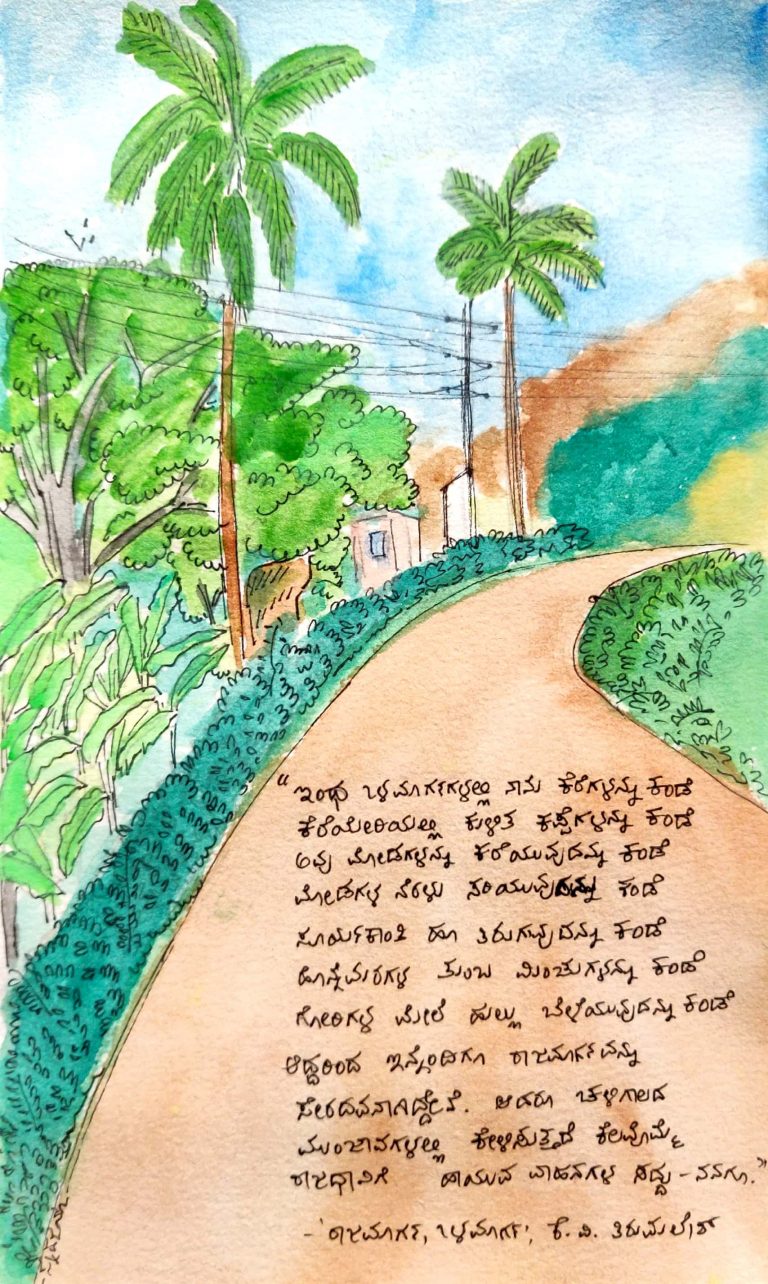 “ ಇಂಥ ಒಳಮಾರ್ಗಗಳಲ್ಲಿ ನಾನು ಕೆರೆಗಳನ್ನು ಕಂಡೆ
ಕೆರೆಯೇರಿಯಲ್ಲಿ ಕುಳಿತ ಕಪ್ಪೆಗಳನ್ನು ಕಂಡೆ
ಅವು ಮೋಡಗಳನ್ನು ಕರೆಯುವುದನ್ನು ಕಂಡೆ
ಮೋಡಗಳ ನೆರಳು ಸರಿಯುವುದನ್ನು ಕಂಡೆ
ಸೂರ್ಯಕಾಂತಿ ಹೂ ತಿರುಗುವುದನ್ನು ಕಂಡೆ
ಹೊನ್ನೆಮರಗಳ ತುಂಬ ಮಿಂಚುಗಳನ್ನು ಕಂಡೆ
ಗೋರಿಗಳ ಮೇಲೆ ಹುಲ್ಲು ಬೆಳೆಯುವುದನ್ನು ಕಂಡೆ
ಆದ್ದರಿಂದ ಇನ್ನೆಂದಿಗೂ ರಾಜಮಾರ್ಗವನ್ನು
ಸೇರದವನಾಗಿದ್ದೇನೆ. ಆದರೂ ಚಳಿಗಾಲದ
ಮುಂಜಾವಗಳಲ್ಲಿ ಕೇಳಿಸುತ್ತದೆ ಕೆಲವೊಮ್ಮೆ
ರಾಜಧಾನಿಗೆ ಹಾಯುವ ವಾಹನಗಳ ಸದ್ದು – ನನಗೂ.”
– ‘ರಾಜಮಾರ್ಗ, ಒಳಮಾರ್ಗ’, ಕೆ. ವಿ. ತಿರುಮಲೇಶ್